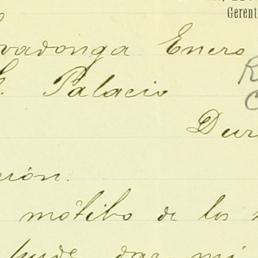 Gerent
vadonga Enero
Palacio
Dur
ción.
motibo de los
pude dar mi